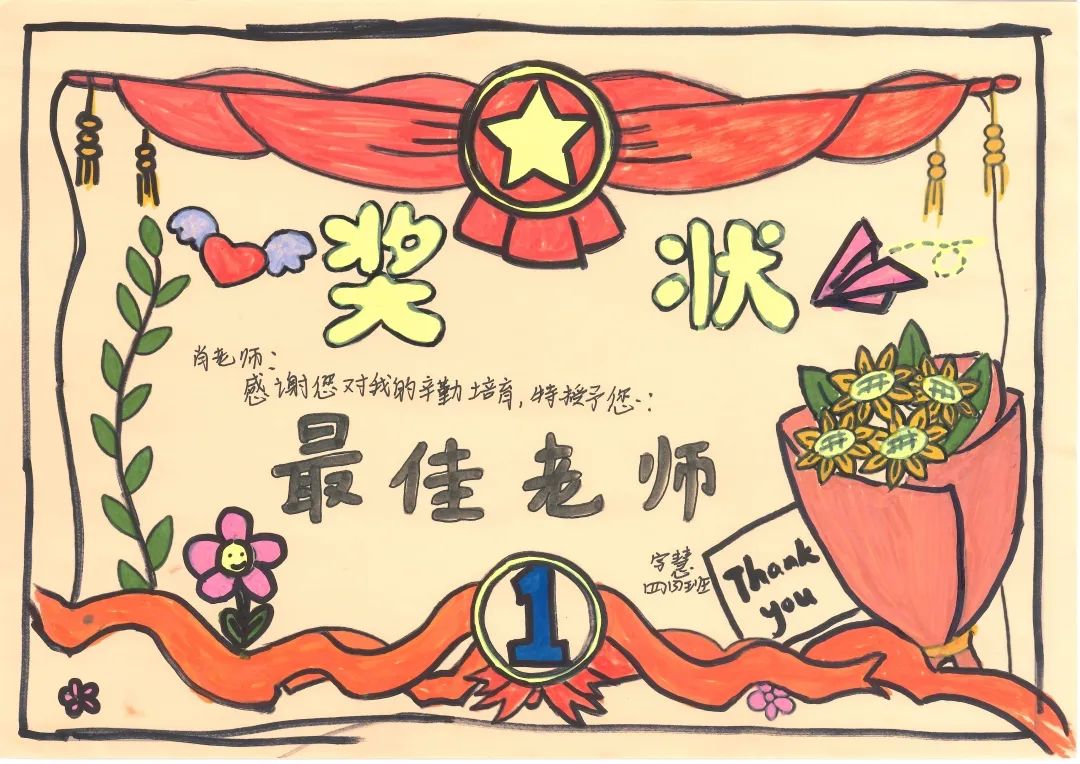 奖状
肖老师：
感谢您对我的辛勤培育，特授予您：
最佳老师
宇慧
四(3)班
Thank
you
1